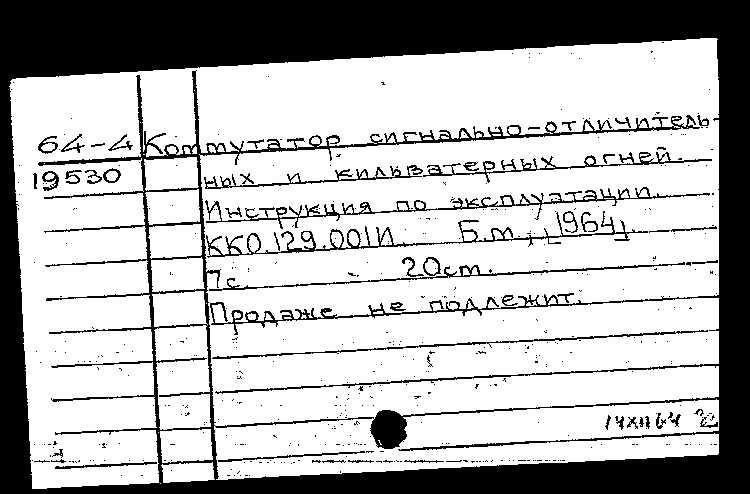 64-4 Коммутатор сигнально-отличитель-
19530 ных и кильватерных огней.
Инструкция по эксплуатации.
ККО.129.001И. Б.м., [1964].
7с. 20см.
Продаже не подлежит.
14XII64